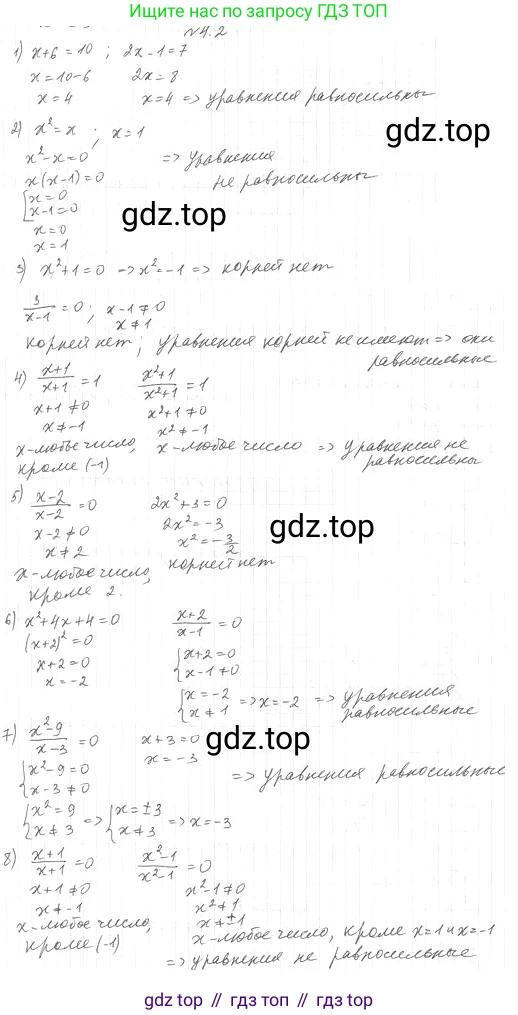 Ищите нас по запросу GDZ ТОП
№4.2
1) x+6=10 ; 2x-1=7
x=10-6 2x=8
x=4 x=4 => уравнения равносильны
2) x²=x ; x=1
gdz.top
x²-x=0 => уравнения
x(x-1)=0 не равносильны
[x=0
x-1=0
gdz.top
x=0
x=1
3) x²+1=0 => x²=-1 => корней нет
3/(x-1) =0 ; x-1≠0
x≠1
корней нет; уравнения корней не имеют => они
равносильные
4) (x+1)/(x+1) =1 (x²+1)/(x²+1) =1
x+1≠0 x²+1≠0
x≠-1 x²≠-1
x-любое число, x-любое число => уравнения не
кроме (-1) равносильны
5) (x-2)/(x-2) =0 2x²+3=0
x-2≠0 2x²=-3
gdz.top
x≠2 x²=-3/2
x-любое число, корней нет
кроме 2.
6) x²+4x+4=0 (x+2)/(x-1) =0
(x+2)²=0 {x+2=0
x+2=0 x-1≠0
x=-2 {x=-2
x≠1 => x=-2 => уравнения
равносильные
7) (x²-9)/(x-3) =0 x+3=0
gdz.top
x=-3
{x²-9=0 => уравнения равносильные
x-3≠0
{x²=9
x≠3 => {x=±3
x≠3 => x=-3
8) (x+1)/(x+1) =0 (x²-1)/(x²-1) =0
x+1≠0 x²-1≠0
x≠-1 x²≠1
x-любое число, x≠±1
кроме (-1) x-любое число, кроме x=1 и x=-1
=> уравнения не равносильные
gdz top // гдз топ // gdz top // гдз топ